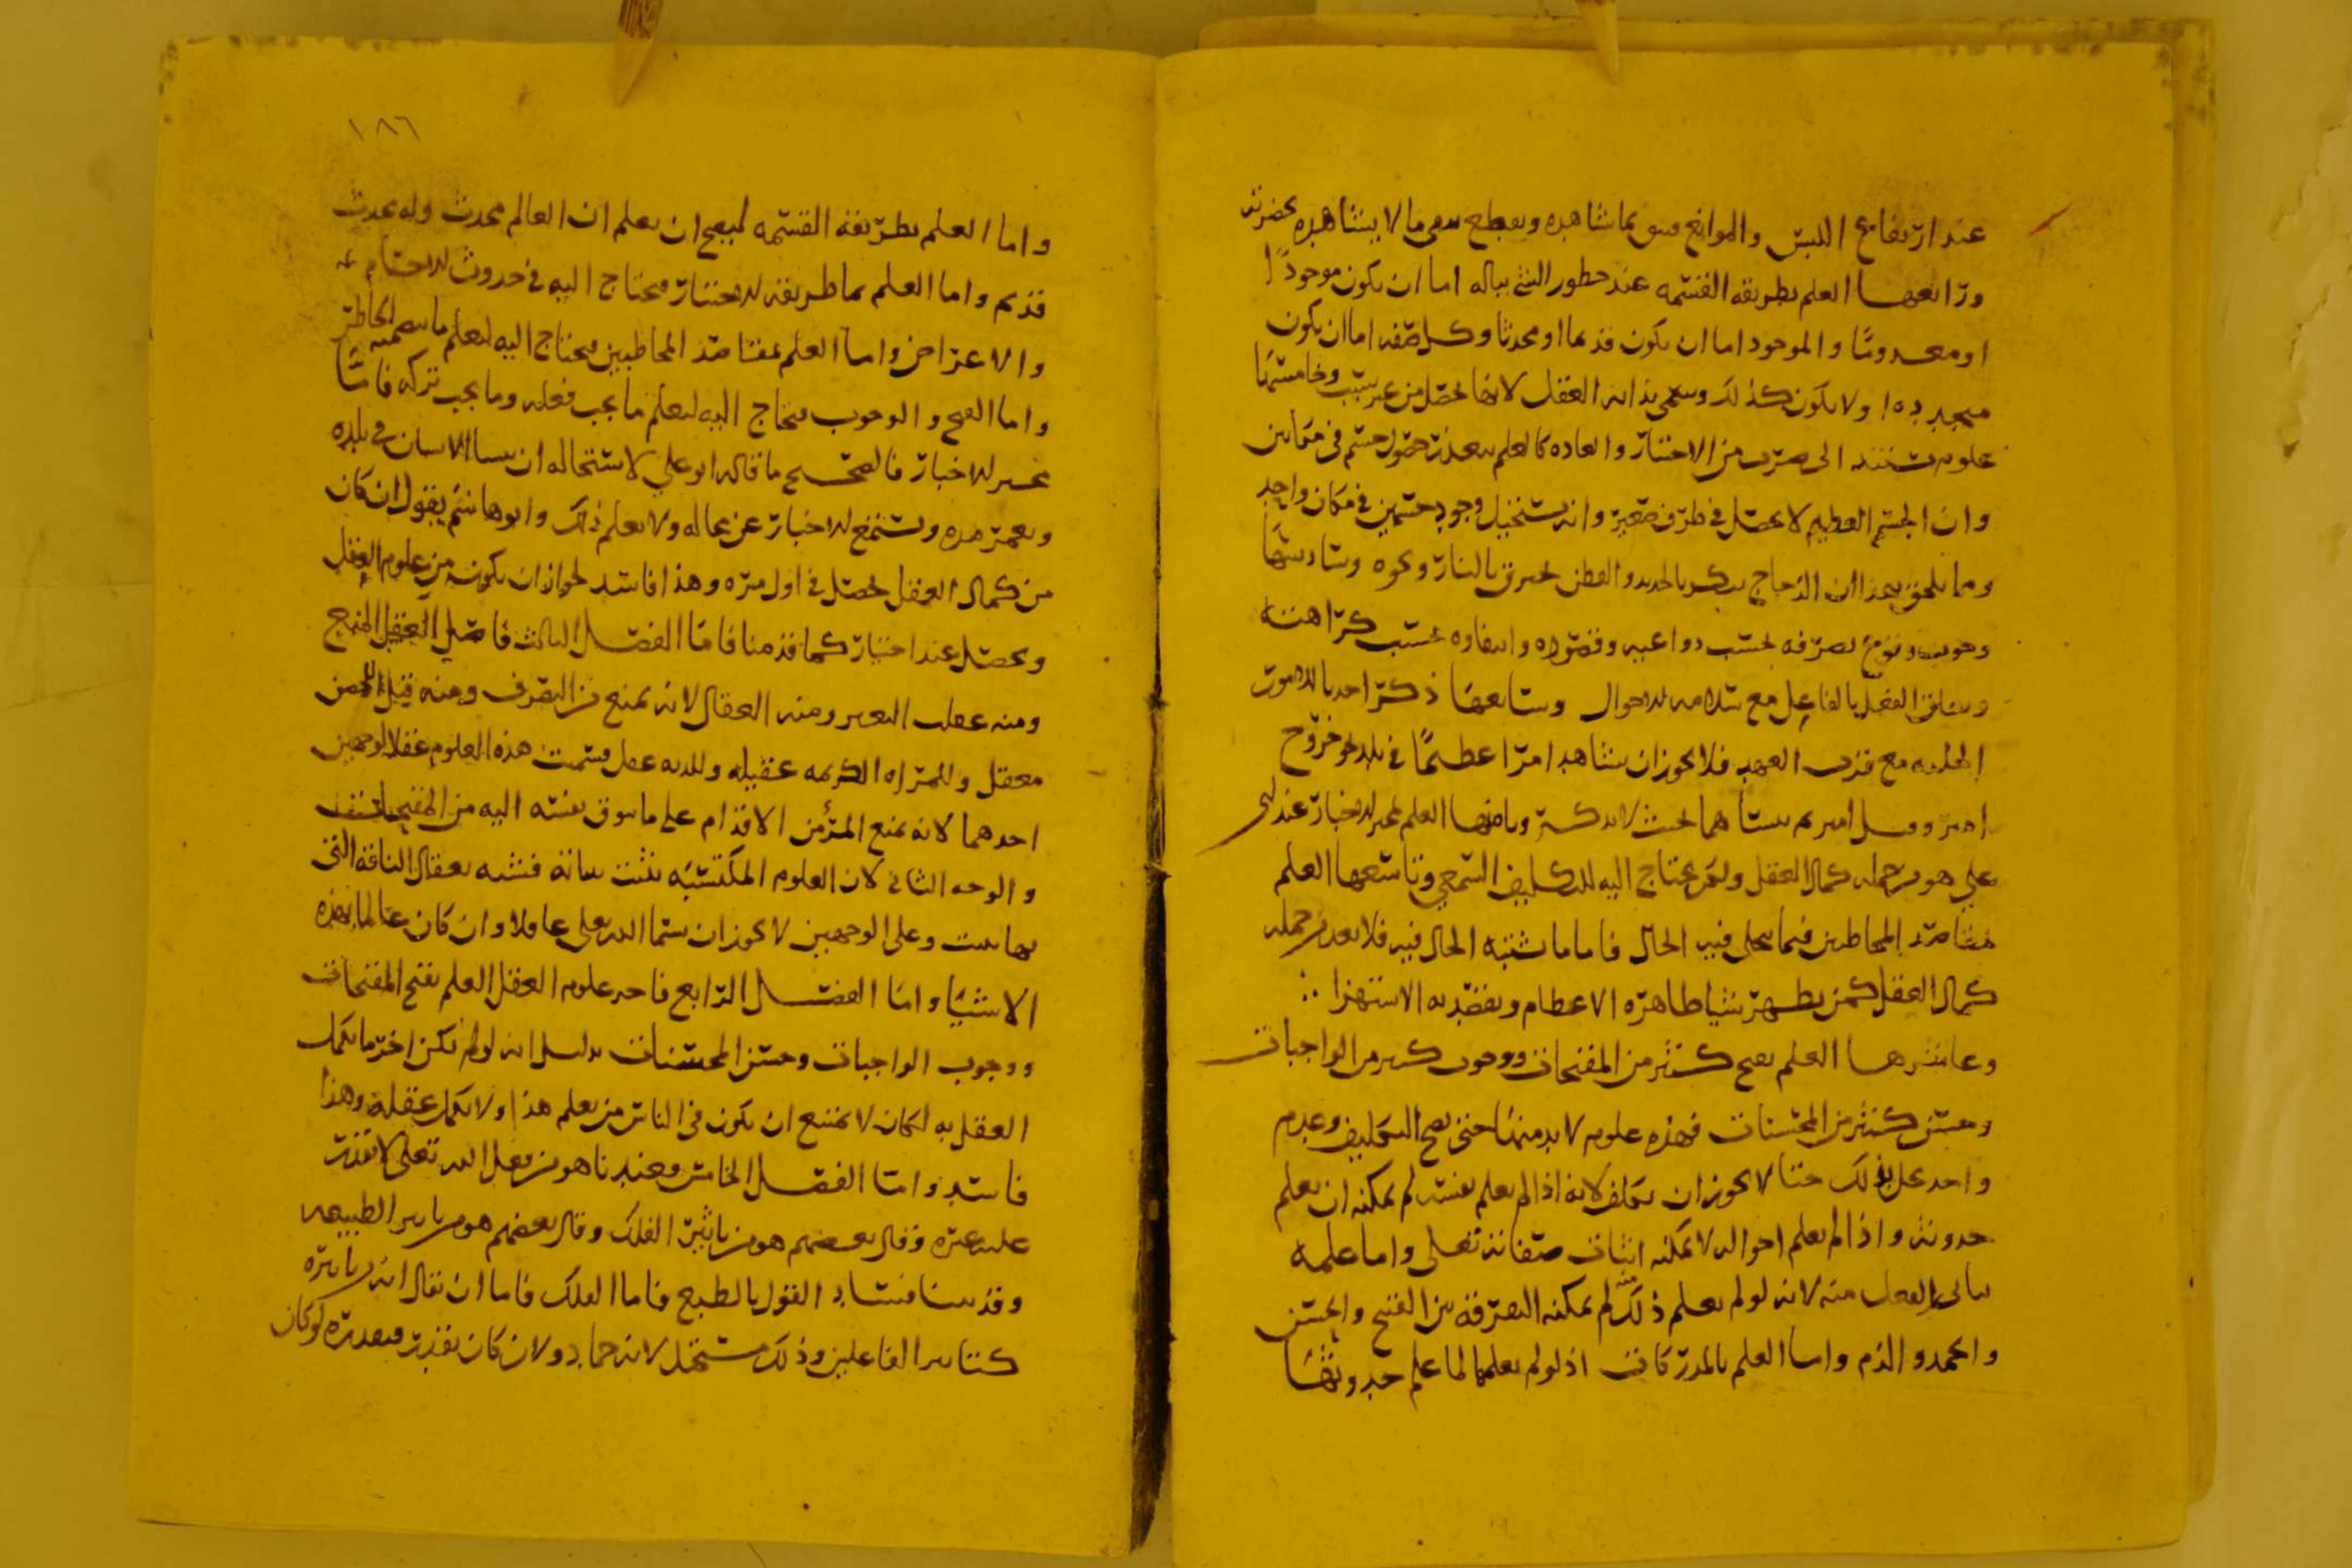 عند ارتفاع اللبس والموانع فيثق بما شاهده ويقطع بنفي ما لا يشاهده بحضرته
ورابعها العلم بطريقه القسمه عند خطور الشي بباله اما ان يكون موجودًا
او معدومًا والموجود اما ان يكون قديما او محدثا وكل صفه اما ان يكون
ولا يكون كذلك وسمي بدايه العقل لانها تحصل من غير سبب وخامسها
علوم تستند الى ضرب من الاختبار والعاده كالعلم بتعذر حصول جسم في مكانين
وان الجسم العظيم لا يحصل في ظرف صغير وانه يستحيل وجود جسمين في مكان واحد
ومما يلحق بهذا ان الزجاج ينكسر بالحديد والقطن يحترق بالنار ونحوه وسادسها
وهو وقوع تصرفه بحسب دواعيه وقصوده وانتفاوه بحسب كراهته
وتعلق الفعل بالفاعل مع سلامه الاحوال وسابعها ذكر احد بالامور
الجليه مع قرب العهد فلا يجوز ان يشاهد امرا عظيمًا في بلد نحو خروج
امير وقتل امير ثم ينساهما بحيث لا يذكر وثامنها العلم بمخبر الاخبار عند ابي
علي هو من جمله كمال العقل ولم يحتاج اليه للتكليف السمعي وتاسعها العلم
مقاصد المخاطبين فيما يتجلى فيه الحال فاما ما يشتبه الحال فيه فلا يعد من جمله
كمال العقل كمن يظهر شيا ظاهره الاعظام ويقصد به الاستهزا
وعاشرها العلم بقبح كثير من المقبحات ووجوب كثير من الواجبات
وحسن كثير من المحسنات فهذه علوم لا بد منها حتى يصح التكليف وعدم
واحد يخل بذلك حتا لا يجوز ان يكلف لانه اذا لم يعلم نفسه لم يمكنه ان يعلم
حدوثه واذا لم يعلم احواله لا يمكنه اثبات صفاته تعلى واما علمه
الفعل منه لانه لو لم يعلم ذلك منه لم يمكنه التفرقه بين القبح والحسن
والحمد والذم واما العلم بالمدركات اذ لو لم يعلمها لما علم حدوثها
١٨٦
واما العلم بطريقة القسمه ليصح ان يعلم ان العالم محدث وله محدث
قديم واما العلم بما طريقه الاختبار فيحتاج اليه في حدوث الاجسام
والاعراض واما العلم بمقاصد المخاطبين فيحتاج اليه ليعلم ما
واما القبح والوجوب فيحتاج اليه ليعلم ما يجب فعله وما يجب تركه فامّا
مخبر الاخبار فالصحيح ما قاله ابو علي لاستحاله ان ينشا الانسان في بلده
ويعمر مده ويستمع الاخبار عن عماله ولا يعلم ذلك وابو هاشم يقول ان كان
من كمال العقل لحصل في اول مره وهذا فاسد لجواز ان يكون من علوم العقل
ويحصل عند اختبار كما قدمنا فامّا الفصل الثالث فاصل العقل المنع
ومنه عقلت البعير ومنه العقال لانه يمنع من التصرف ومنه قيل للحصن
معقل وللمراه الكريمه عقيله وللديه عقل وسميت هذه العلوم عقلا لوجهين
احدهما لانه يمنع المرء من الاقدام على ما تتوق نفسه اليه من المقبحات
والوجه الثاني لان العلوم المكتسبه تثبت بثباته فشبه بعقال الناقة التي
بها تثبت وعلى الوجهين لا يجوز ان يسما الله تعلى عاقلا وان كان عالما بهذه
الاشيا وامّا الفصل الرابع فاحد علوم العقل العلم بقبح المقبحات
ووجوب الواجبات وحسن المحسنات بدليل انه لو لم تكن اخر ما يكمل
العقل به لكان لا يمتنع ان يكون في الناس من يعلم هذا ولا يكمل عقله وهذا
فاسد وامّا الفصل الخامس فعندنا هو من فعل الله تعلى لا يقدر
عليه غيره وقال بعضهم هو من تاثير الفلك وقال بعضهم هو من تاثير الطبيعه
وقد بينا فساد القول بالطبع فاما الفلك فاما ان يقال انه تاثيره
كتاثير الفاعلين وذلك مستحيل لانه جماد ولان كان يقدر فبقدره لو كان